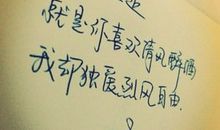 就是你喜欢清风醉酒
我却独爱烈风自由.